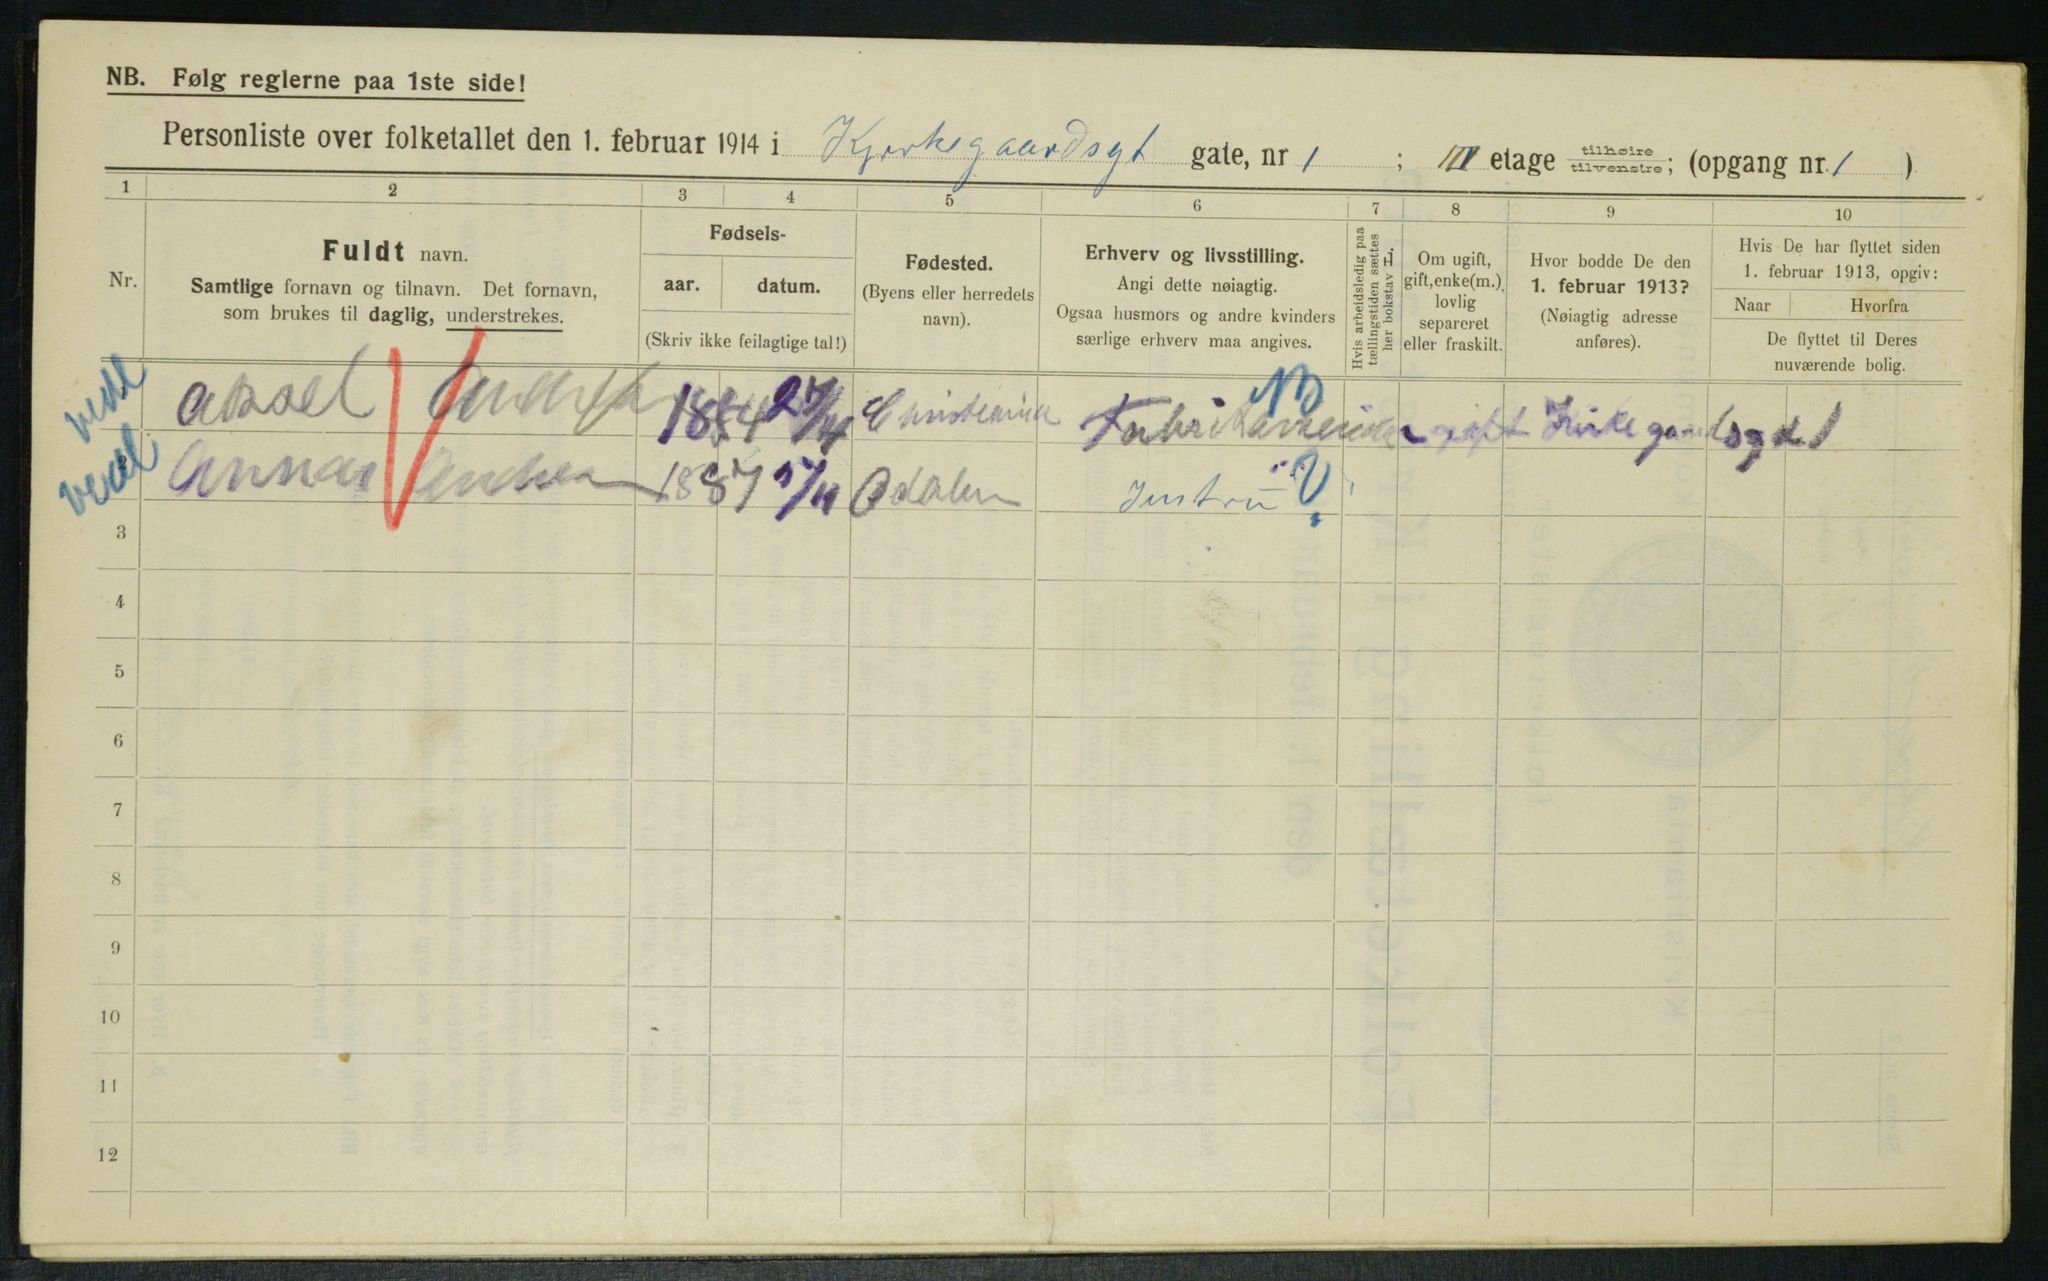 NB. Følg reglerne paa 1ste side!
Personliste over folketallet den 1. februar 1914 i Kjerkegaardsgt gate, nr 1 ; III etage tilhøire/tilvenstre; (opgang nr. 1 )
1 2 3 4 5 6 7 8 9 10
Nr.
Fuldt navn.
Samtlige fornavn og tilnavn. Det fornavn,
som brukes til daglig, understrekes.
Fødsels-
aar. datum.
(Skriv ikke feilagtige tal!)
Fødested.
(Byens eller herredets
navn).
Erhverv og livsstilling.
Angi dette nøiagtig.
Ogsaa husmors og andre kvinders
særlige erhverv maa angives.
Hvis arbeidsledig paa
tællingstiden sættes
her bokstav L.
Om ugift,
gift, enke(m.),
lovlig
separeret
eller fraskilt.
Hvor bodde De den
1. februar 1913?
(Nøiagtig adresse
anføres).
Hvis De har flyttet siden
1. februar 1913, opgiv:
Naar Hvorfra
De flyttet til Deres
nuværende bolig.
NB
1884 27/4 Christiania gift Kirkegaardsgt 1
Anna 1887 Odalen Hustru ?
3
4
5
6
7
8
9
10
11
12